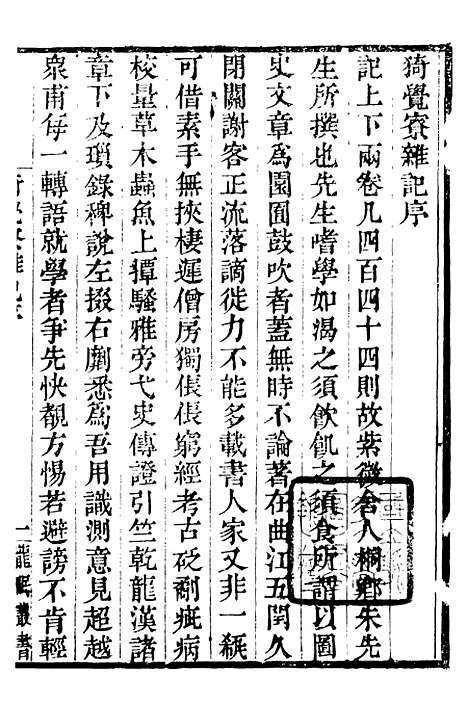 猗覺寮雜記序
記上下兩卷凡四百四十四則故紫微舍人桐鄉朱先
生所撰也先生嗜學如渴之須飲飢之須食所謂以圖
史文章爲園囿鼓吹者蓋無時不論著在曲江五閏久
閉關謝客正流落謫徙力不能多載書人家又非一瓻
可借素手無挾棲遲僧房獨倀倀窮經考古砭劀疵病
校量草木蟲魚上撢騷雅旁弋史傳證引竺乾龍漢諸
章下及瑣錄稗說左掇右劘悉爲吾用識測意見超越
衆甫每一轉語就學者爭先快覩方惕若避謗不肯輕
一 龍眠叢書